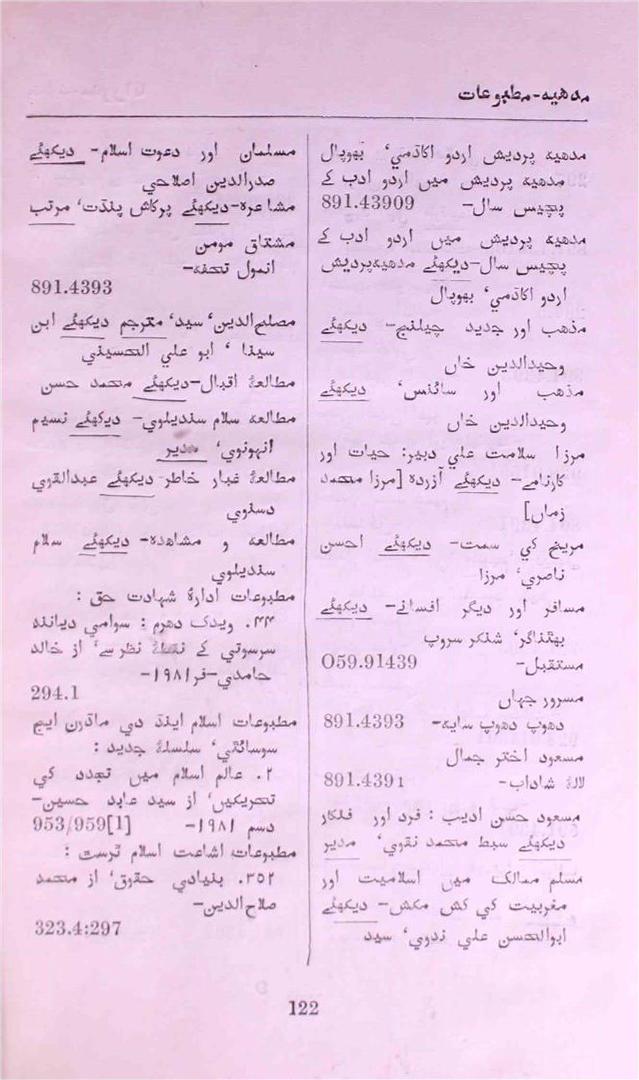 مدهیہ-مطبوعات
مدهیہ پردیش اردو اکاڈمی، بھوپال
مدهیہ پردیش میں اردو ادب کے
پچیس سال- 891.43909
مدهیہ پردیش میں اردو ادب کے
پچیس سال-دیکھئے مدهیہ پردیش
اردو اکاڈمی، بھوپال
مذهب اور جدید چیلنج- دیکھئے
وحیدالدین خاں
مذهب اور سائنس، دیکھئے
وحیدالدین خاں
مرزا سلامت علی دبیر: حیات اور
کارنامے- دیکھئے آزردہ [مرزا محمد
زماں]
مریخ کی سمت- دیکھئے احسن
ناصری، مرزا
مسافر اور دیگر افسانے- دیکھئے
بھٹناگر، شنکر سروپ
مستقبل- O59.91439
مسرور جہاں
دھوپ دھوپ سایہ- 891.4393
مسعود اختر جمال
لالۂ شاداب- 891.4391
مسعود حسن ادیب : فرد اور فنکار
دیکھئے سبط محمد نقوی، مدیر
مسلم ممالک میں اسلامیت اور
مغربیت کی کش مکش- دیکھئے
ابوالحسن علی ندوی، سید
مسلمان اور دعوت اسلام- دیکھئے
صدرالدین اصلاحی
مشاعرہ-دیکھئے پرکاش پنڈت، مرتب
مشتاق مومن
انمول تحفہ-
891.4393
مصلح الدین، سید، مترجم دیکھئے ابن
سینا ، ابو علی الحسینی
مطالعۂ اقبال-دیکھئے محمد حسن
مطالعہ سلام سندیلوی- دیکھئے نسیم
انہونوی، مدیر
مطالعۂ غبار خاطر-دیکھئے عبدالقوی
دسنوی
مطالعہ و مشاهدہ- دیکھئے سلام
سندیلوی
مطبوعات ادارۂ شہادت حق :
۴۴. ویدک دھرم : سوامی دیانند
سرسوتی کے نقطۂ نظر سے، از خالد
حامدی-فر۱۹۸۱-
294.1
مطبوعات اسلام اینڈ دی ماڈرن ایج
سوسائٹی، سلسلۂ جدید :
۲. عالم اسلام میں تجدد کی
تحریکیں، از سید عابد حسین-
دسم ۱۹۸۱- 953/959[1]
مطبوعات اشاعت اسلام ٹرسٹ :
۳۵۲. بنیادی حقوق، از محمد
صلاح الدین-
323.4:297
122